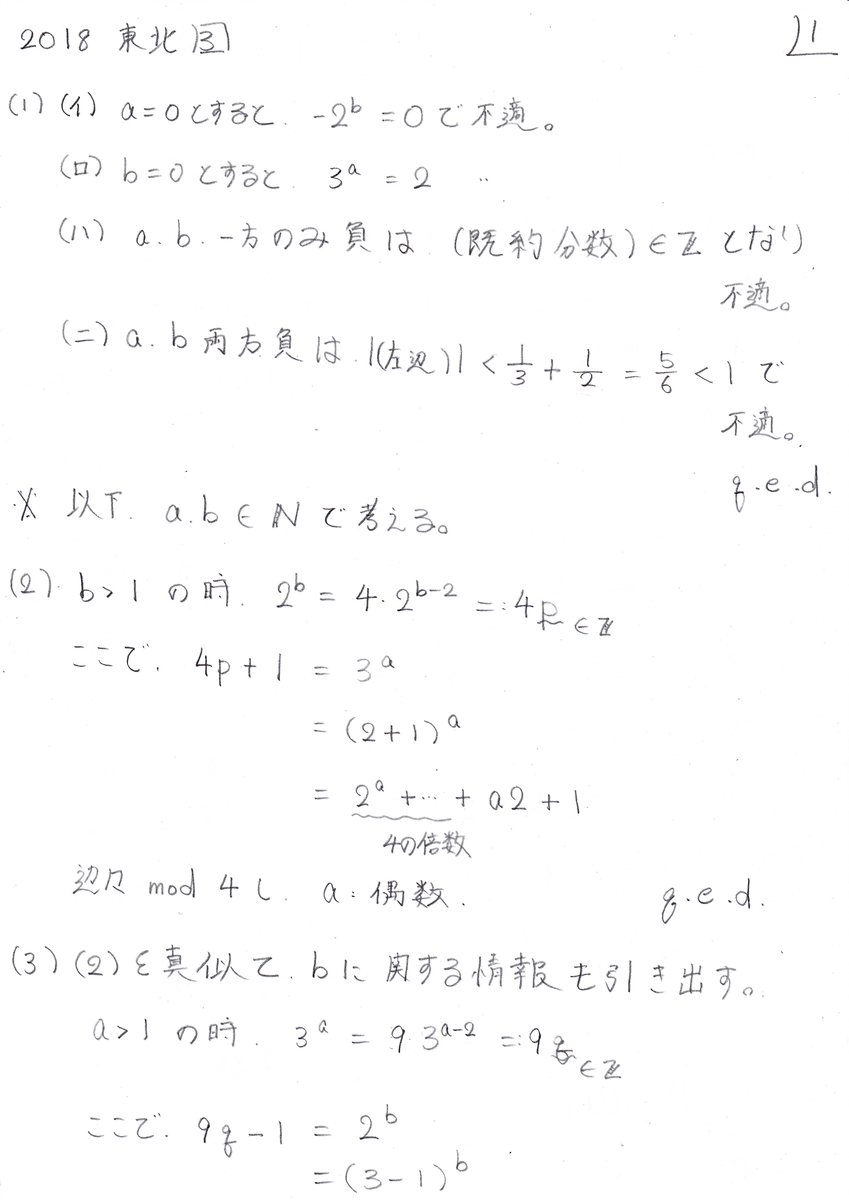 2018 東北 3
1
(1) (イ) a=0とすると. -2^b = 0 で不適。
(ロ) b=0とすると. 3^a = 2 〃
(ハ) a.b.一方のみ負は (既約分数)∈ℤ となり
不適。
(ニ) a.b両方負は |(左辺)| < 1/3 + 1/2 = 5/6 < 1 で
不適。
q.e.d.
※ 以下. a.b∈ℕで考える。
(2). b>1 の時. 2^b = 4・2^{b-2} =: 4p ∈ℤ
ここで. 4p+1 = 3^a
= (2+1)^a
= 2^a +… + a2 + 1
4の倍数
辺々 mod 4 し. a:偶数.
q.e.d.
(3) (2)を真似て. bに関する情報も引き出す。
a>1 の時. 3^a = 9 3^{a-2} =: 9q ∈ℤ
ここで. 9q-1 = 2^b
= (3-1)^b